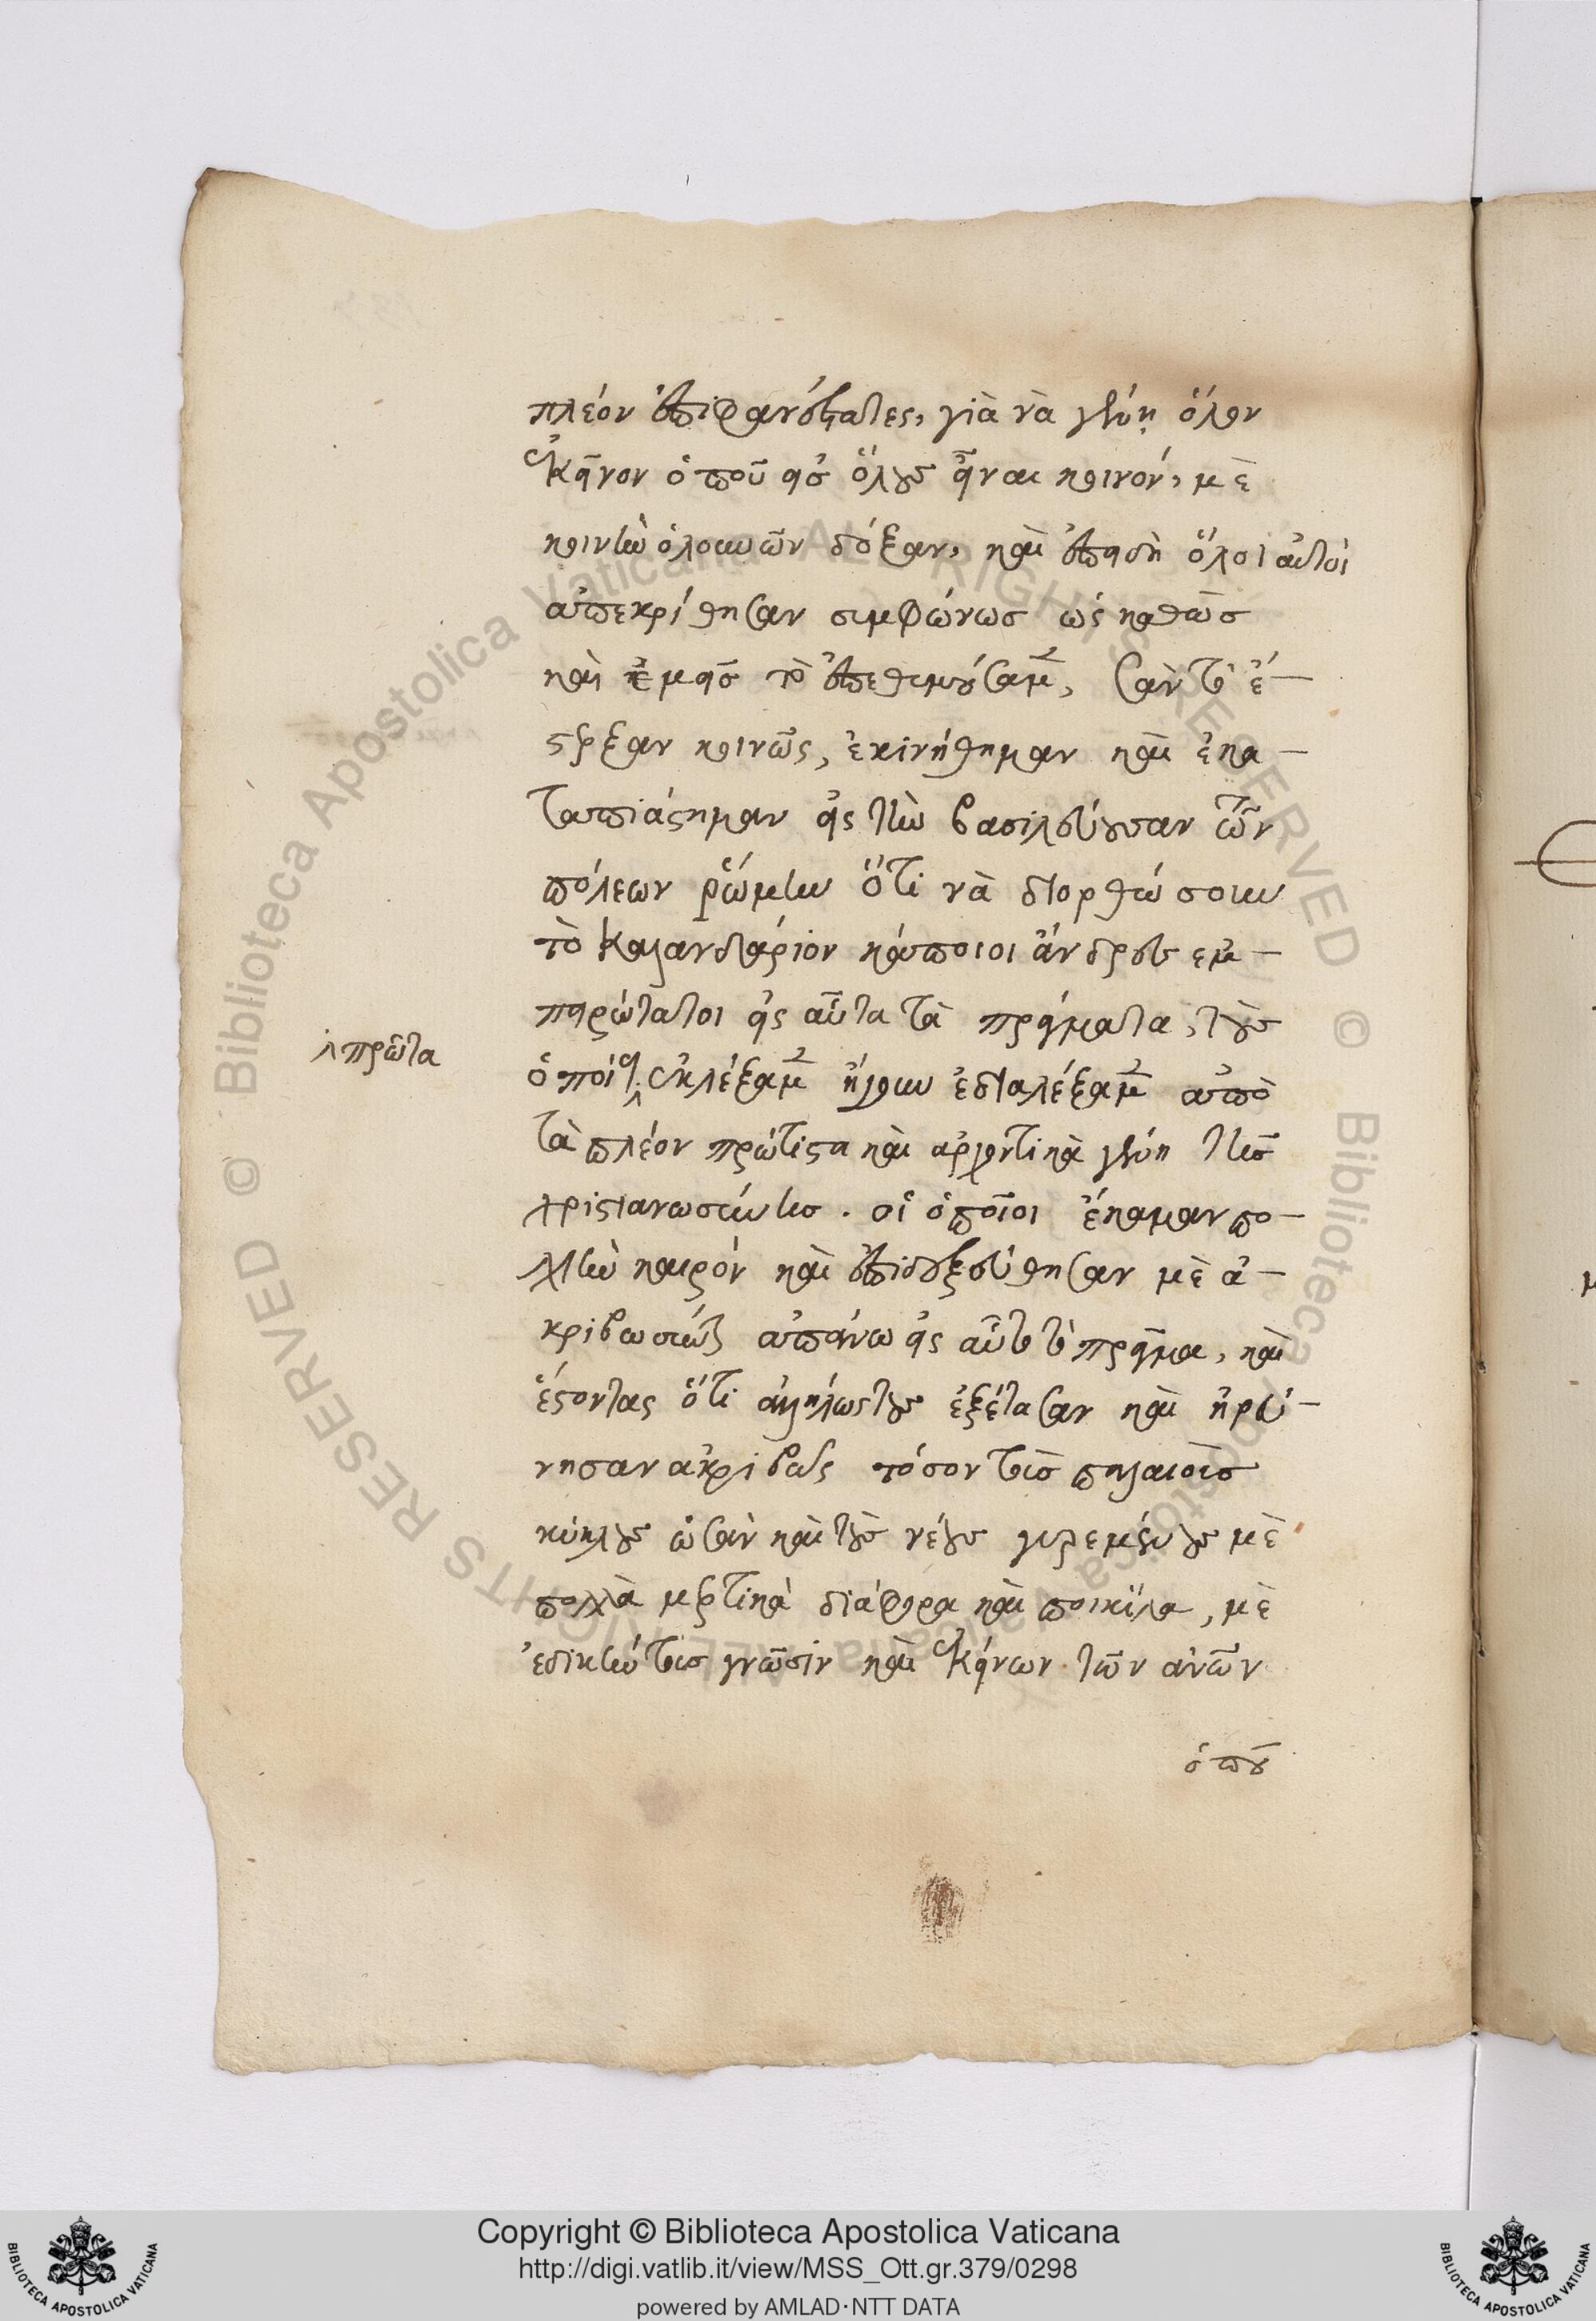 πλέον ἐπιφανέσταταις, γιὰ νὰ γένῃ ὅλον
ἐκεῖνον ὁποῦ εἰσ ὅλουσ εἶναι κοινόν, μὲ
κοινὴν ὁλουνῶν δόξαν, καὶ ἐπειδὴ ὅλοι αὐτοὶ
ἀπεκρίθησαν σιμφώνωσ ὡς καθὼσ
καὶ ἐμεῖσ τὸ ἐπεθιμούσαμεν, σὰν τὸ ἔ-
στρεξαν κοινῶς, ἐκινήθημαν καὶ ἐκα-
ταπιάστημαν εἰς τὴν βασιλεύουσαν τῶν
πόλεων ῥώμην ὅτι νὰ διορθώσουν
τὸ καλανδάριον κάποιοι ἄνδρες εμ-
πειρώτατοι εἰς αὖτα τὰ πράγματα, τοὺσ
ὁποίους ἐκλέξαμεν ἤγουν ἐδιαλέξαμεν ἀπὸ
τὰ πλέον πρώτιστα καὶ αρχοντικὰ γένη τῆσ
χριστιανωσύνησ. οἱ ὁποῖοι ἔκαμαν πο-
λὴν καιρὸν καὶ ἐπιδοξεύθησαν μὲ ἀ-
κριβωσύνη ἀπάνω εἰς αὖτο τὸ πρᾶγμα, καὶ
ἔστοντας ὅτι ἀλλήλωστους ἐξέτασαν καὶ ἠρεύ-
νησαν ἀκριβῶς τόσον τοὶσ παλαιοὶσ
κύκλουσ ὡσὰν καὶ τοὺσ νέουσ γυρεμένουσ μὲ
πολλὰ μερτικὰ διάφορα καὶ ποικίλα, μὲ
ἐδικήν τους γνῶσιν καὶ ἐκείνων τῶν ἀνῶν
ὁποῦ
πρῶτα
Copyright © Biblioteca Apostolica Vaticana
http://digi.vatlib.it/view/MSS_Ott.gr.379/0298
powered by AMLAD·NTT DATA